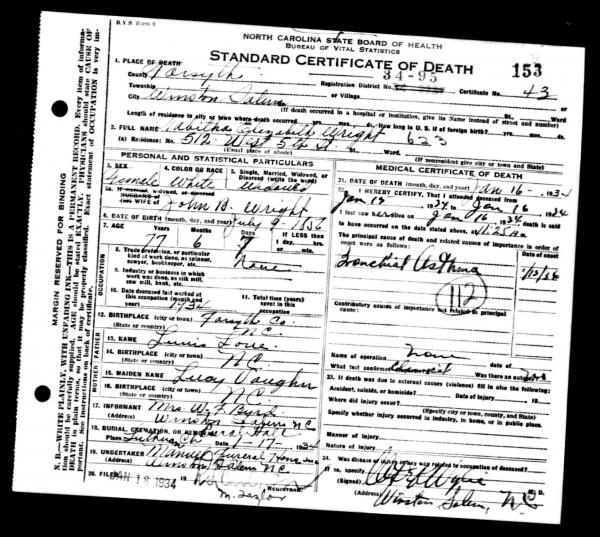 B.V.S. Form 8
NORTH CAROLINA STATE BOARD OF HEALTH
BUREAU OF VITAL STATISTICS
STANDARD CERTIFICATE OF DEATH 153
1. PLACE OF DEATH
County Forsyth 34-95
Registration District No. Certificate No. 43
Township or Village
City Winston Salem No. St. Ward
(If death occurred in a hospital or institution, give its Name instead of street and number)
Length of residence in city or town where death occurred yrs. mos. ds. How long in U. S. if of foreign birth? yrs. mos. ds.
2. FULL NAME Tabitha Elizabeth Wright 623
(a) Residence: No. 512 West 5th St. Ward
(Usual place of abode) (If nonresident give city or town and State)
PERSONAL AND STATISTICAL PARTICULARS
3. SEX Female
4. COLOR OR RACE White
5. Single, Married, Widowed, or Divorced (write the word) Widowed
5a. If married, widowed, or divorced
(or) WIFE of John B. Wright
6. DATE OF BIRTH (month, day, and year) July 9 1856
7. AGE 77 6 7 If LESS than 1 day, hrs. or min.
OCCUPATION
8. Trade, profession, or particular kind of work done, as spinner, sawyer, bookkeeper, etc. None
9. Industry or business in which work was done, as silk mill, saw mill, bank, etc.
10. Date deceased last worked at this occupation (month and year) 1934
11. Total time (years) spent in this occupation
12. BIRTHPLACE (city or town) Forsyth Co.
(State or country) N.C.
FATHER
13. NAME Lewis
14. BIRTHPLACE (city or town)
(State or country) N.C.
MOTHER
15. MAIDEN NAME Lucy Vaughn
16. BIRTHPLACE (city or town)
(State or country) N.C.
17. INFORMANT Mrs. W. F. Byrd
Winston Salem NC
18. BURIAL, CREMATION, OR REMOVAL
Place Date 1-17-1934
19. UNDERTAKER Funeral Home
Winston Salem NC
20. FILED JAN 18 1934
REGISTRAR.
M. Taylor
MEDICAL CERTIFICATE OF DEATH
21. DATE OF DEATH (month, day, and year) Jan 16 - 1934
22. I HEREBY CERTIFY, That I attended deceased from
Jan 15 1934, to Jan 16 1934
I last saw her alive on Jan 16 1934, death is said
to have occurred on the date stated above, at 11:25 A m.
The principal cause of death and related causes of importance in order of onset were as follows: Date of onset
Bronchial Asthma
112
Contributory causes of importance not related to principal cause:
Name of operation none date of
What test confirmed
23. If death was due to external causes (violence) fill in also the following:
Accident, suicide, or homicide? Date of injury 19
Where did injury occur?
(Specify city or town, county, and State)
Specify whether injury occurred in industry, in home, or in public place.
Manner of injury
Nature of injury
24. Was disease or injury in any way related to occupation of deceased?
If so, specify
(Signed) M. D.
(Address) Winston Salem, NC
MARGIN RESERVED FOR BINDING
N. B.—WRITE PLAINLY, WITH UNFADING INK—THIS IS A PERMANENT RECORD. Every item of information should be carefully supplied. AGE should be stated EXACTLY. PHYSICIANS should state CAUSE OF DEATH in plain terms, so that it may be properly classified. Exact statement of OCCUPATION is very important. See instructions on back of certificate.